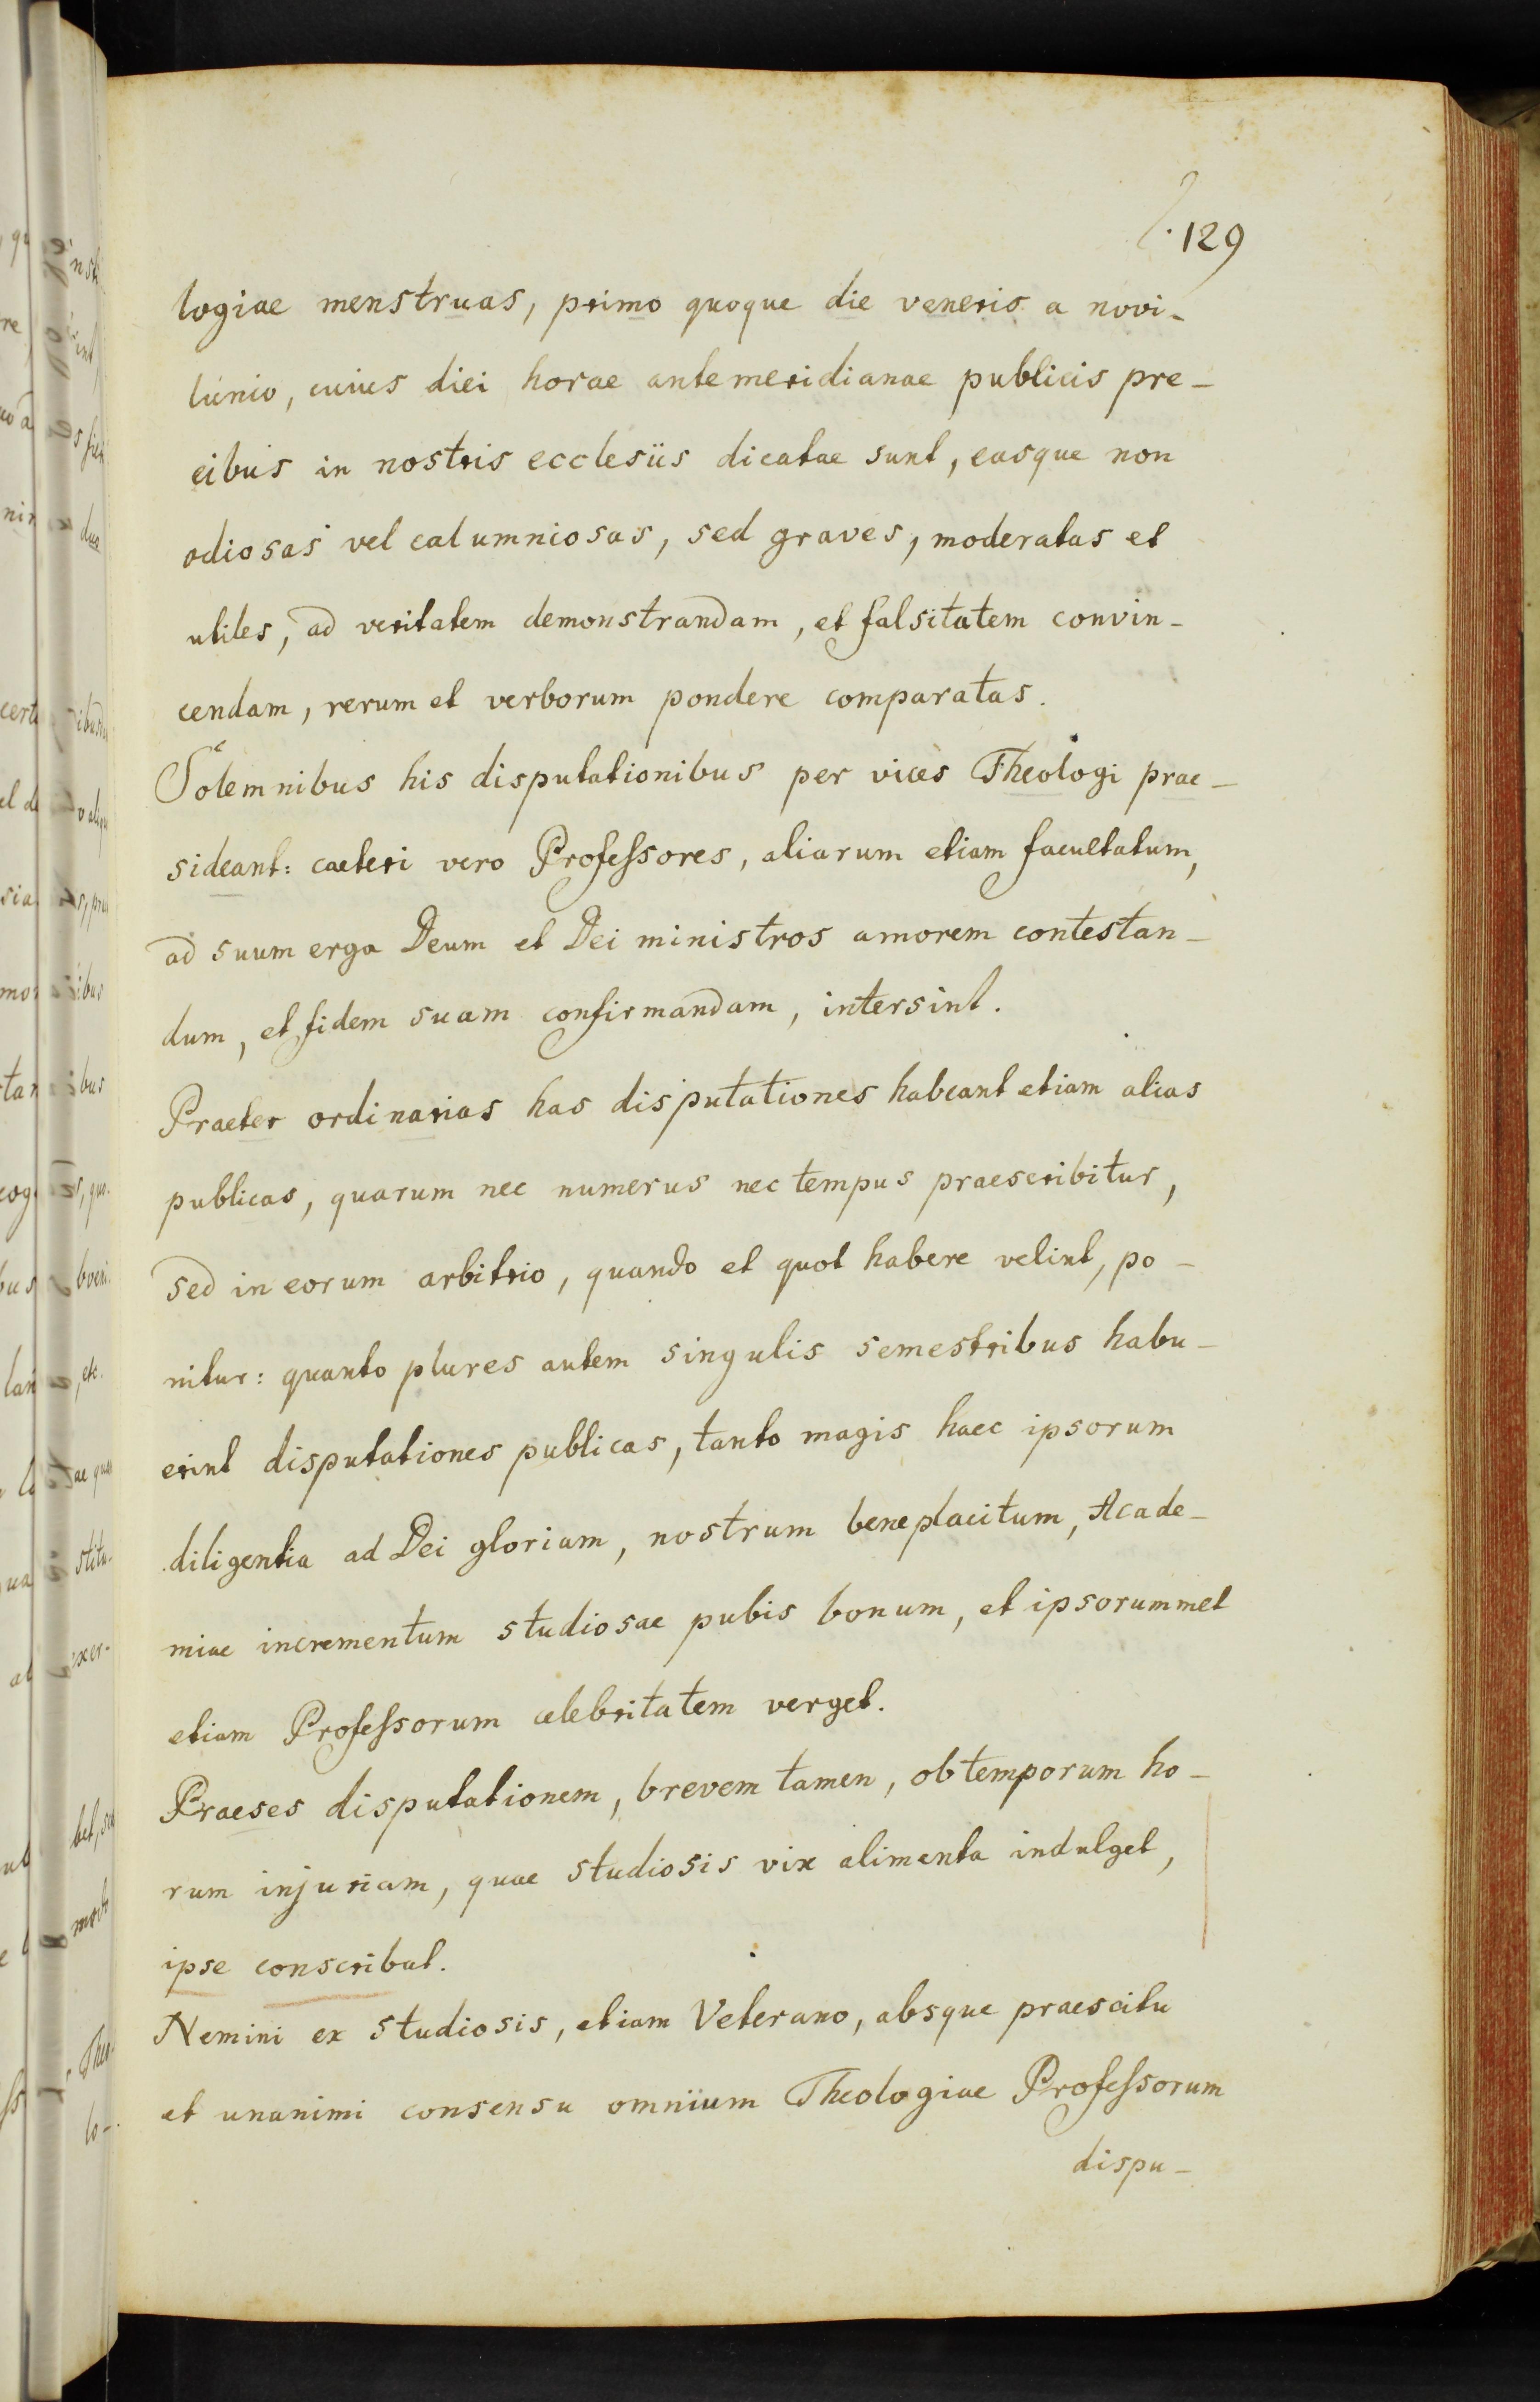 129
logiae menstruas, primo quoque die veneris a novi-
lunio, cuius diei horae antemeridianae publicis pre-
cibus in nostris ecclesiis dicatae sunt, easque non
odiosas vel calumniosas, sed graves, moderatas et
utiles, ad veritatem demonstrandam, et falsitatem convin-
cendam, rerum et verborum pondere comparatas.
Solemnibus his disputationibus per vices Theologi prae-
sideant: caeteri vero Professores, aliarum etiam facultatum,
ad suum erga Deum et Dei ministros amorem contestan-
dum, et fidem suam confirmandam, intersint.
Praeter ordinarias has disputationes habeant etiam alias
publicas, quarum nec numerus nec tempus praescribitur,
sed in eorum arbitrio, quando et quot habere velint, po-
nitur: quanto plures autem singulis semestribus habu-
erint disputationes publicas, tanto magis haec ipsorum
diligentia ad Dei gloriam, nostrum beneplacitum, Acade-
miae incrementum studiosae pubis bonum, et ipsorummet
etiam Professorum celebritatem verget.
Praeses disputationem, brevem tamen, ob temporum ho-
rum injuriam, quae studiosis vix alimenta indulget,
ipse conscribat.
Nemini ex studiosis, etiam Veterano, absque praescitu
et unanimi consensu omnium Theologiae Professorum
dispu-